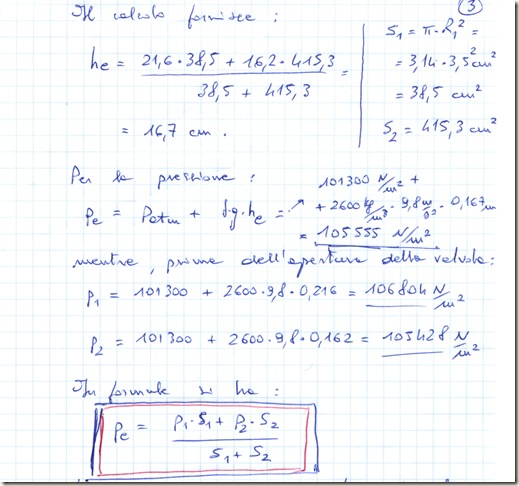 3
Il calcolo fornisce :
he = (21,6 · 38,5 + 16,2 · 415,3) / (38,5 + 415,3) =
= 16,7 cm .
S1 = π · R1² =
= 3,14 · 3,5² cm²
= 38,5 cm²
S2 = 415,3 cm²
Per la pressione :
Pe = Patm + d·g·he = → 101300 N/m² +
+ 2600 kg/m³ · 9,8 m/s² · 0,167 m
= 105555 N/m²
mentre, prima dell'apertura della valvola:
P1 = 101300 + 2600 · 9,8 · 0,216 = 106804 N/m²
P2 = 101300 + 2600 · 9,8 · 0,162 = 105428 N/m²
In formule si ha :
Pe = (P1 · S1 + P2 · S2) / (S1 + S2)